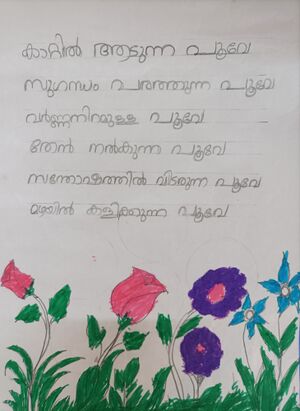 കാറ്റിൽ ആടുന്ന പൂവേ
സുഗന്ധം പരത്തുന്ന പൂവേ
വർണ്ണനിറമുള്ള പൂവേ
തേൻ നൽകുന്ന പൂവേ
സന്തോഷത്തിൽ വിടരുന്ന പൂവേ
മഴയിൽ കുളിക്കുന്ന പൂവേ